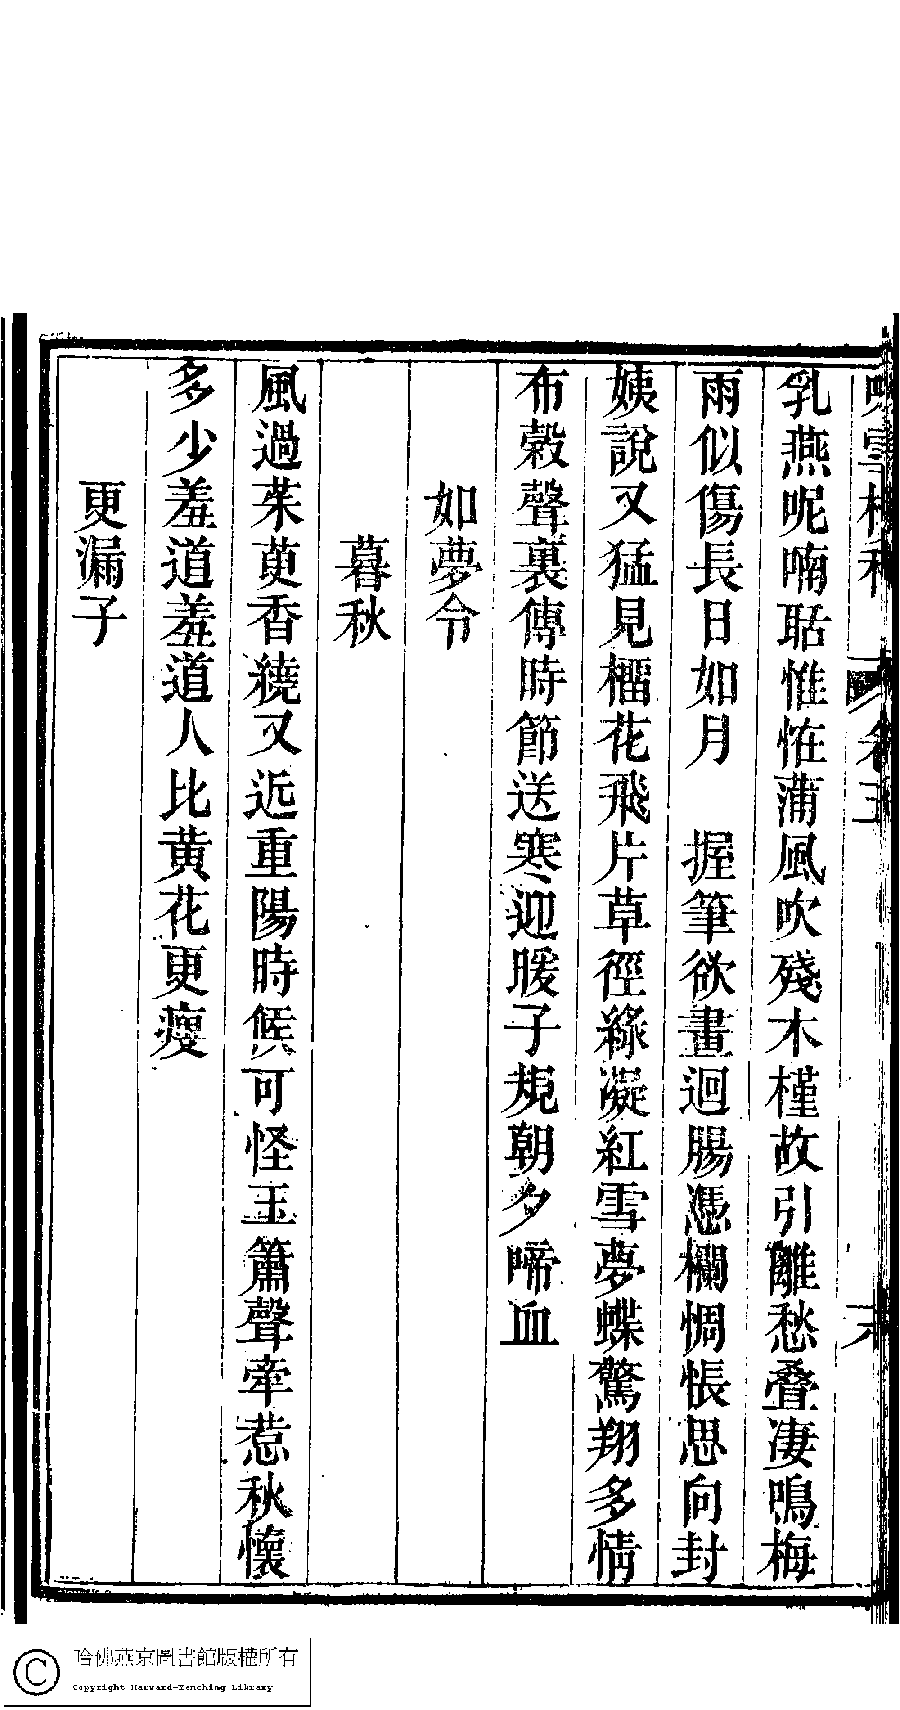 乳燕呢喃聒惟恠蒲風吹殘木槿故引離愁疊凄鳴梅
雨似傷長日如月　握筆欲畫迴腸憑欄惆悵思向封
姨說又猛見榴花飛片草徑綠凝紅雪夢蝶驚翔多情
布穀聲裏傳時節送寒迎暖子規朝夕啼血
如夢令
暮秋
風過茱萸香繞又近重陽時候可怪玉簫聲牽惹秋懷
多少羞道羞道人比黃花更瘦
更漏子
哈佛燕京圖書館版權所有
Copyright Harvard-Yenching Library